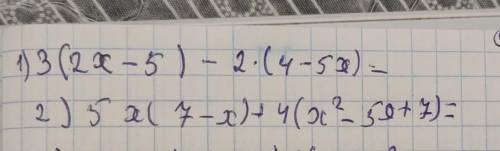 1) 3(2x-5) - 2·(4-5x)=
2) 5 x( 7-x)+4(x²-5x+7)=